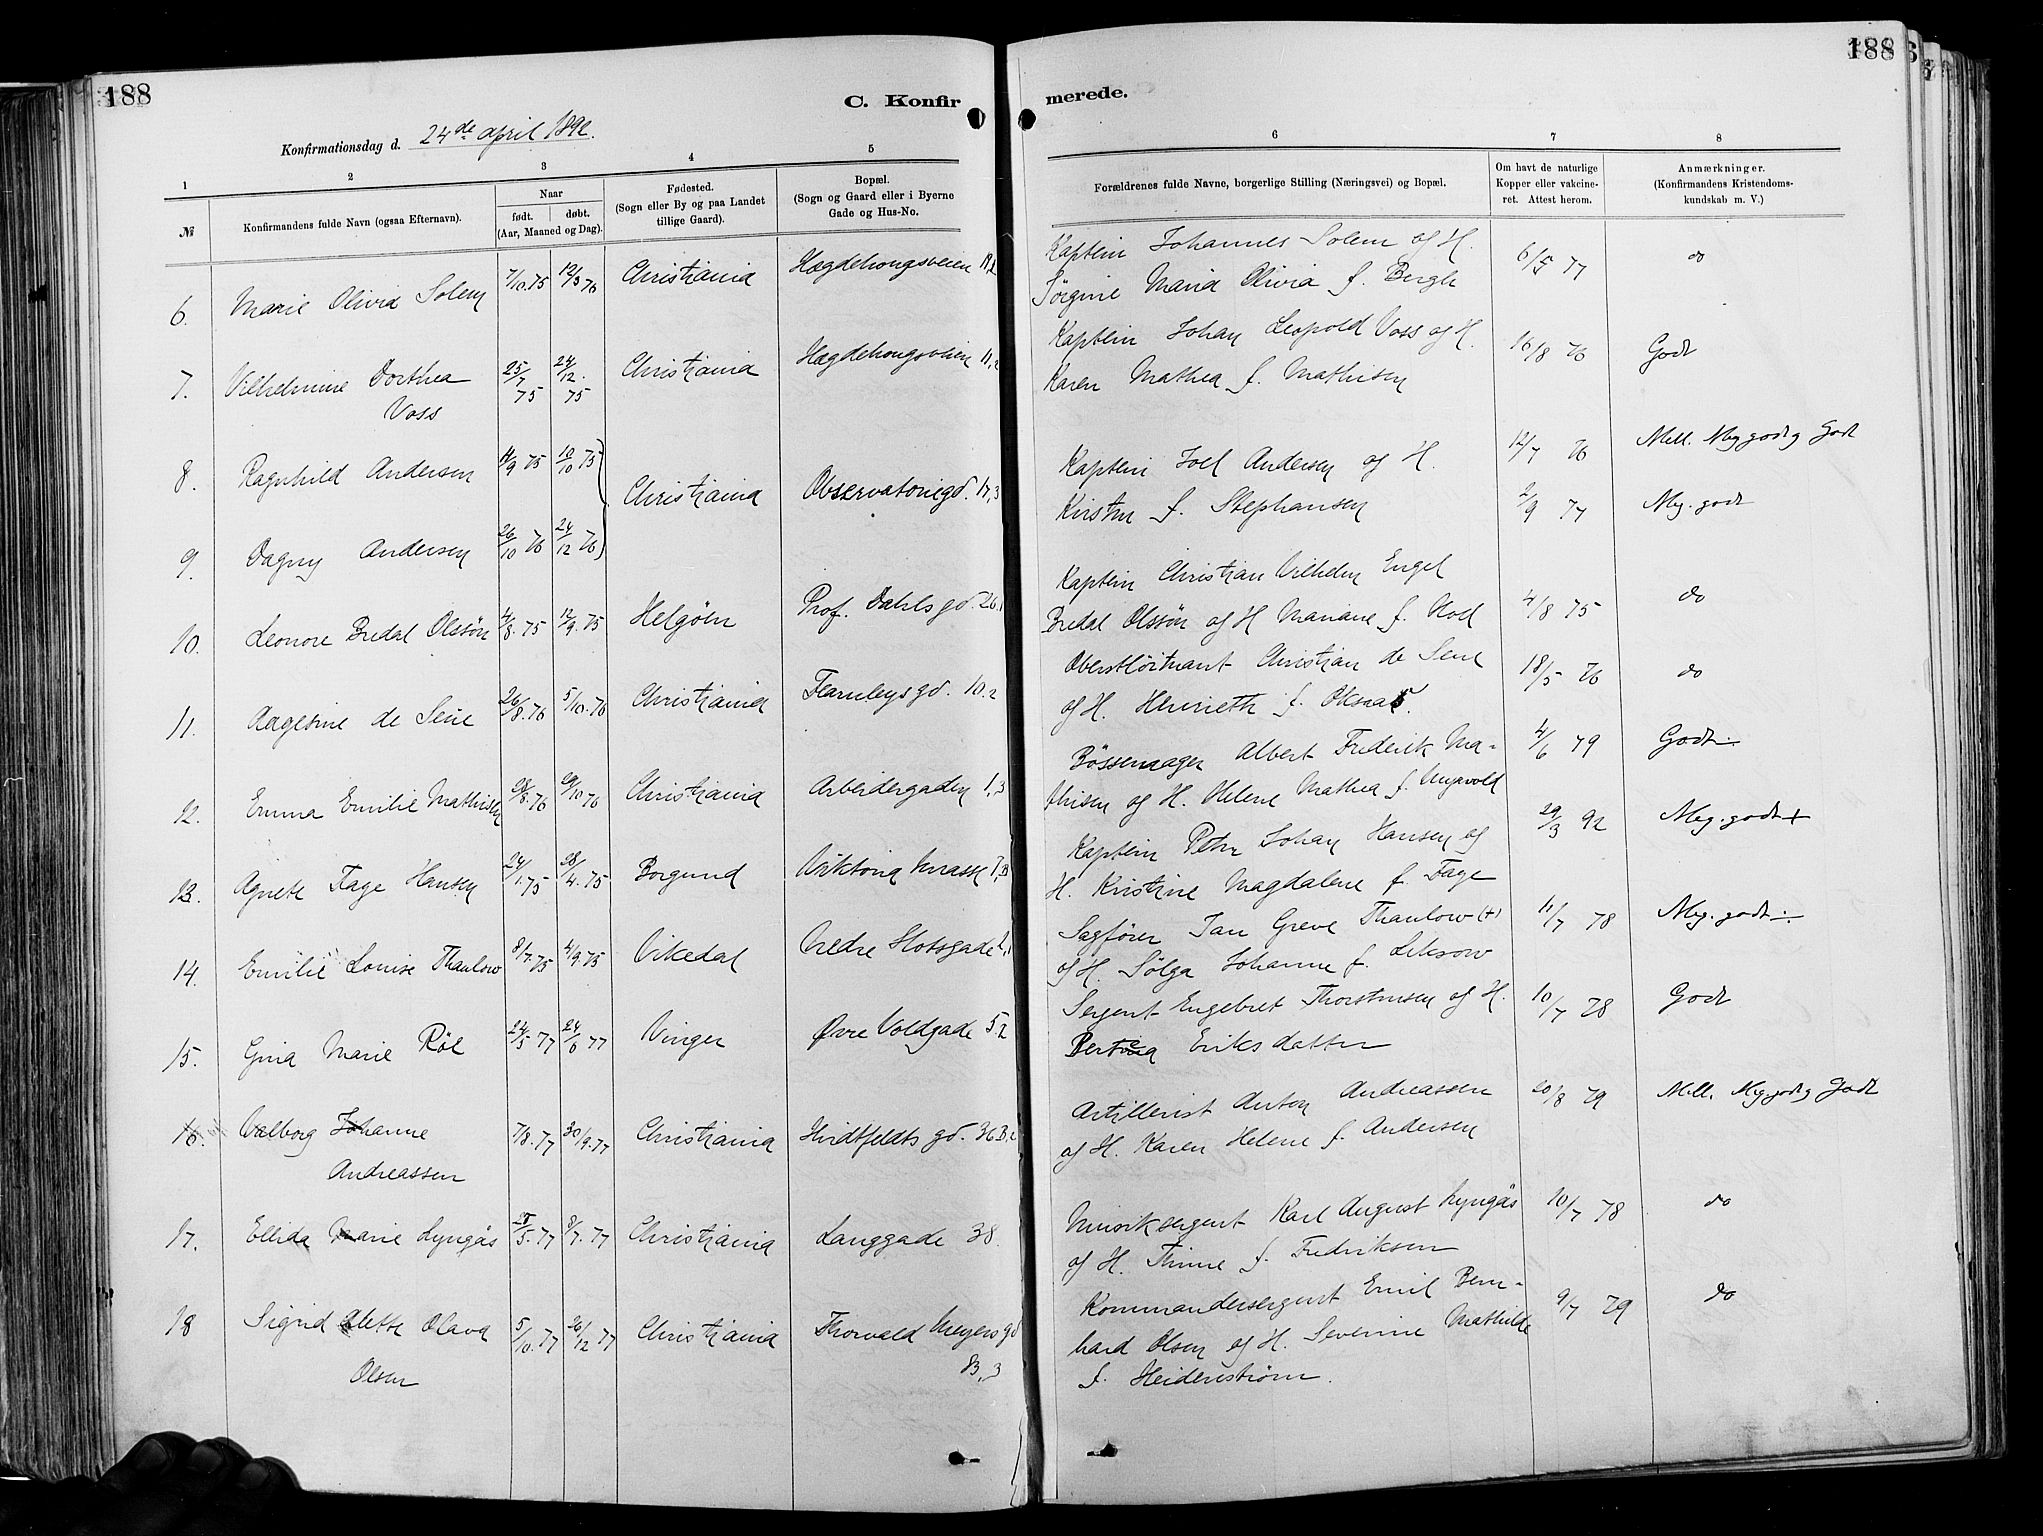 188
C. Konfir
Konfirmationsdag d. 24de april 1892.
1
2
3
4
5
№
Konfirmandens fulde Navn (ogsaa Efternavn).
Naar
født.
døbt.
(Aar, Maaned og Dag).
Fødested.
(Sogn eller By og paa Landet
tillige Gaard).
Bopæl.
(Sogn og Gaard eller i Byerne
Gade og Hus-No.
6. Marie Olivia Solem 7/10.75 12/3 76 Christiania Hægdehougsveien 19,2
7. Vilhelmine Dorthea 25/7 75 24/12. 75 Christiania Hægdehougsveien 11,2
Voss
8. Ragnhild Andersen 4/9 75 10/10 75
Christiania Observatoriegd. 17,3
9. Dagny Andersen 26/10 76 24/12 76
10. Leonore Bredal Olssön 4/8.75 12/9.75 Helgöen Prof. Dahls gd. 26,1
11. Aagesine de Seue 26/8.76 5/10.76 Christiania Fearnleys gd. 10.2
12. Emma Emilie Mathisen 28/8.76 29/10 76 Christiania Arbeidergaden 1,3
13. Agnete Fage Hansen 24/1.75 28/4.75 Borgund Viktoria terrasse
14. Emilie Louise Thaulow 8/7.75 4/9.75 Vikedal Nedre Slotsgade
15. Gina Marie Röl 24/5 77 24/6 77 Vinger Øvre Voldgade 5.2
16. Valborg Johanne 7/8.77 30/9.77 Christiania Hvidtfeldts gd. 36B,2
Andreassen
17. Ellida Marie Lyngås 5.77 8/7.77 Christiania Langgade 38.
18 Sigrid Alette Olava 5/10.77 26/12 77 Christiania Thorvald Meyers gd
Olsen 8B,3
188
merede.
6
7
8
Forældrenes fulde Navne, borgerlige Stilling (Næringsvei) og Bopæl.
Om havt de naturlige
Kopper eller vakcine-
ret. Attest herom.
Anmærkninger.
(Konfirmandens Kristendoms-
kundskab m. V.)
Kaptein Johannes Solem og H. 6/5 77 do
Jørgine Maria Olivia f. Bergh
Kaptein Johan Leopold Voss og H. 16/8 76 Godt
Karen Mathea f. Mathisen
Kaptein Joel Andersen og H. 12/7 76 Mell. Meg godt og Godt
Kirsten f. Stephansen 2/9 77 Meg. godt
Kaptein Christian Vilhelm Engel
Bredal Olssön og H Mariane f. Holl 4/8 75 do
Oberstlöitnant Christian de Seue 18/5 76 do
og H. Henriette f. Oksaas.
Bössemager Albert Frederik Ma- 4/6 79 Godt
thisen og H. Helene Mathea f. Ungvold
Kaptein Peter Johan Hansen og 29/3 92 Meg. godt +
H. Kristine Magdalene f. Fage
Sagförer Jan Greve Thaulow (+) 11/7 78 Meg. godt
og H. Sölga Johanne f. Lekson
Sergent Engebret Thorstensen og H. 10/7 78 Godt
Eriksdatter
Artillerist Anton Andreassen 20/8 79 Mell. Meg godt og Godt
og H. Karen Helene f. Andersen
Musiksergent Karl August Lyngås 10/7 78 do
og H. Thrine f. Fredriksen
Kommandersergent Emil Bern- 9/7 79 do
hard Olsen og H. Severine Mathilde
f. Heidenstrøm.